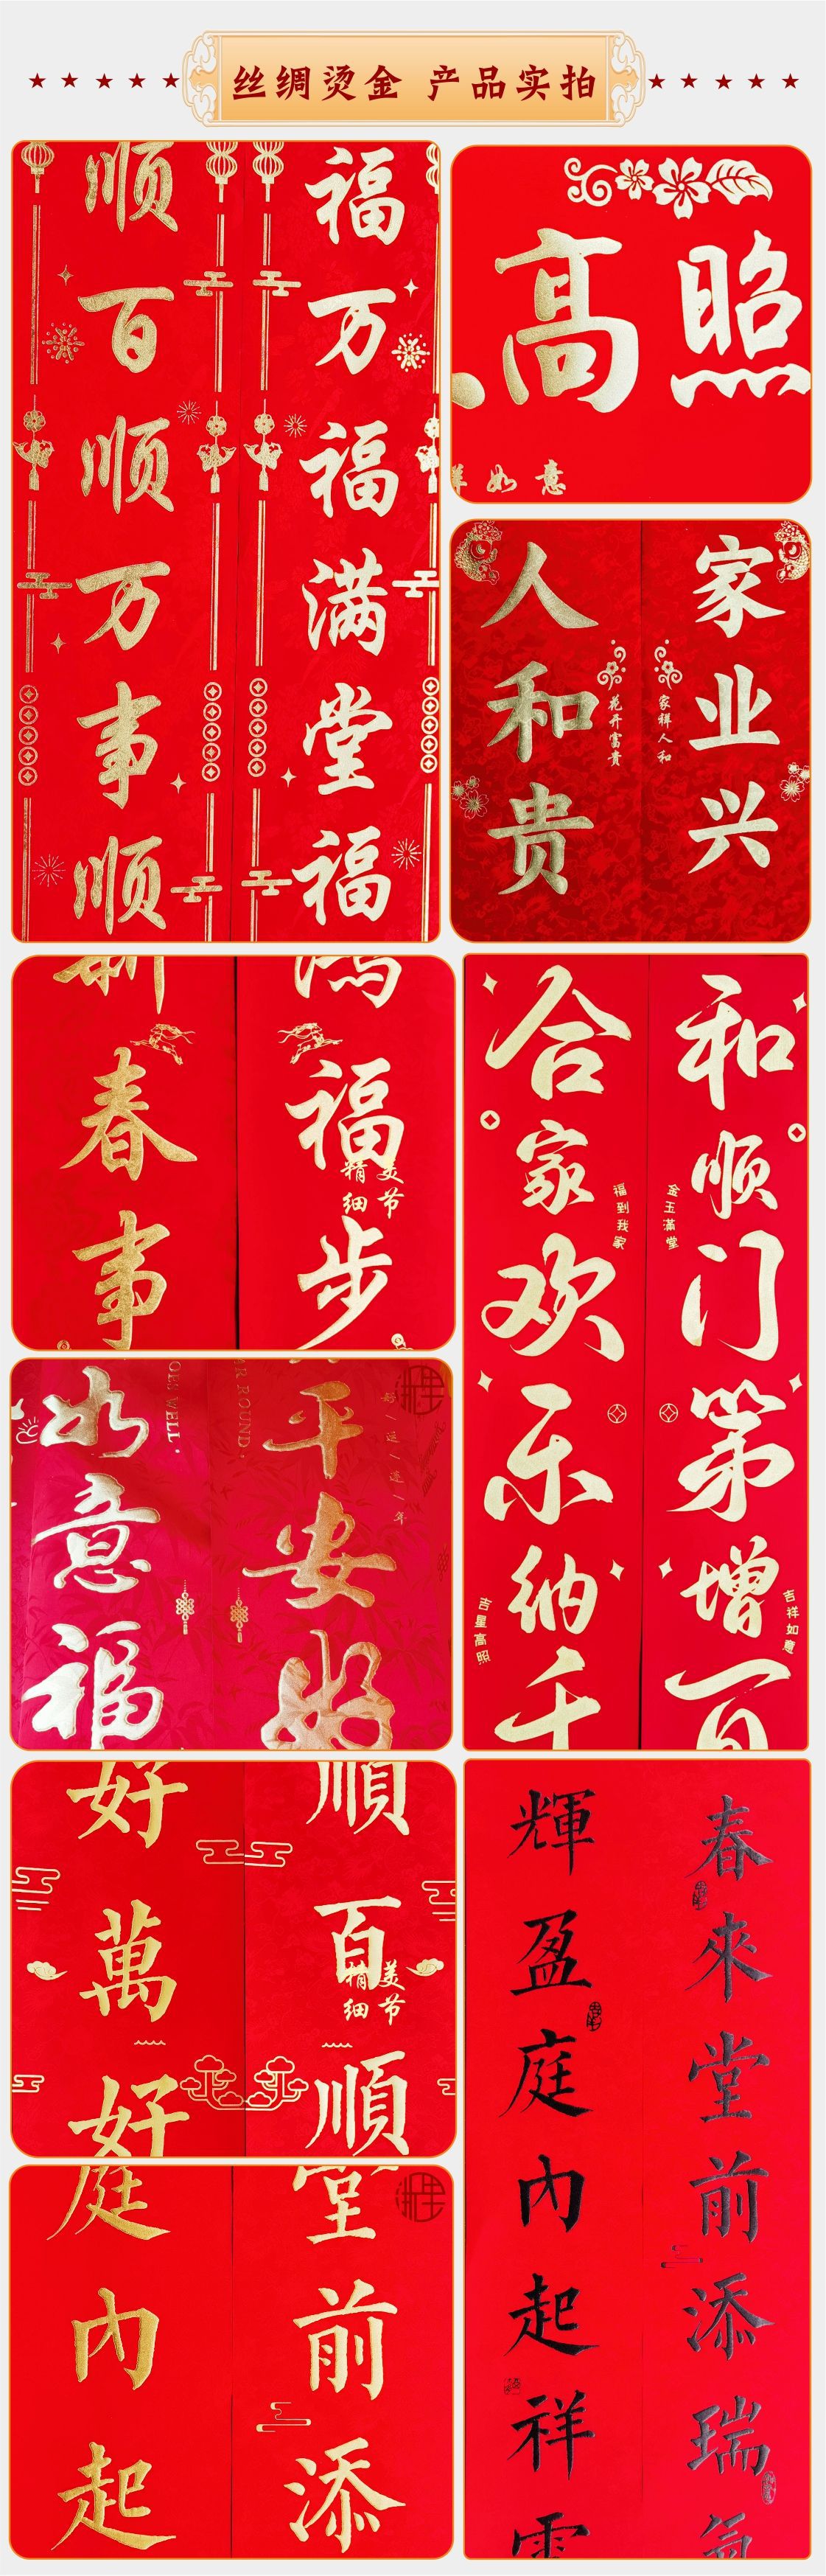 丝绸烫金 产品实拍
福万福满堂福
顺百顺万事顺
高照
祥如意
家业兴
家祥人和
花开富贵
人和贵
鸿福步
新春事
精美
细节
和顺门第增百
金玉满堂
吉祥如意
福到我家
吉星高照
合家欢乐纳千
平安好
好/运/逐/年
AR ROUND.
OES WELL.
如意福
順百順
精美
细节
好萬好
春來堂前添瑞氣
輝盈庭內起祥雲
堂前添
庭內起